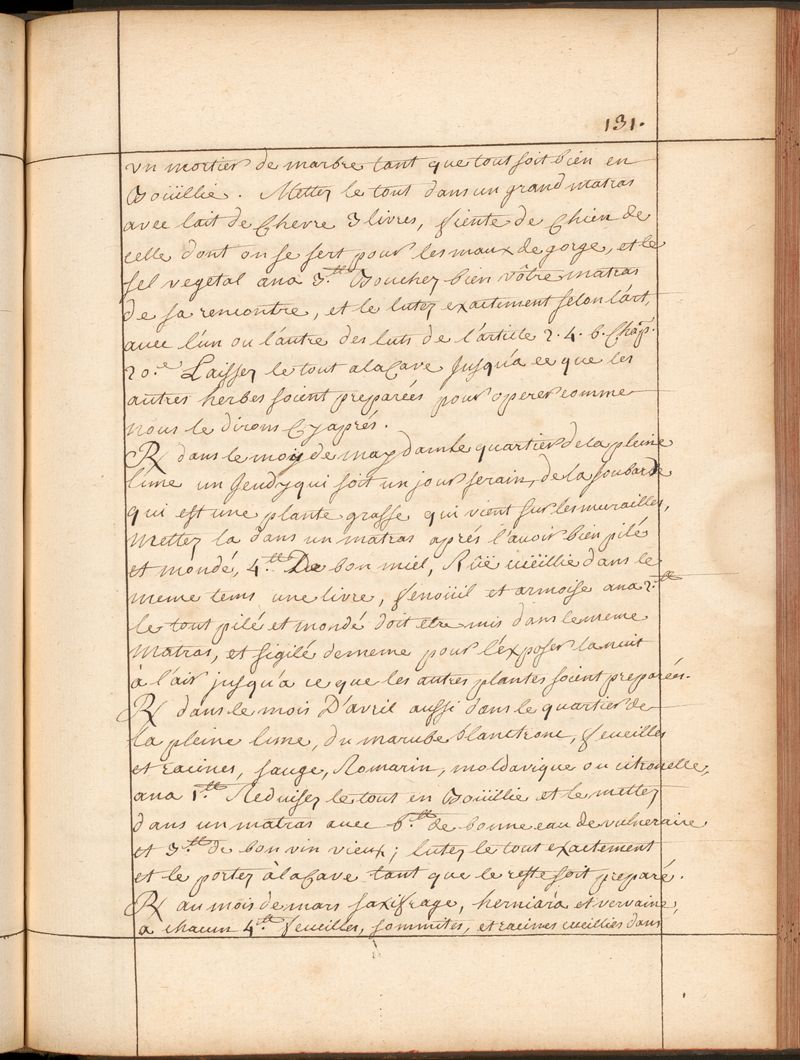 131.
vn mortier de marbre tant que tout soit bien en
Boüillie. Mettez le tout dans un grand matras
avec lait de Chevre 3 livres, fiente de Chien de
celle dont on se sert pour les maux de gorge, et le
sel vegetal ana 3.tt Bouchez bien vôtre matras
de sa rencontre, et le lutez exactement selon l'art,
avec l'un ou l'autre des luts de l'article 2. 4. 6. Chap.
20.e Laissez le tout a la Cave Jusqu'a ce que les
autres herbes soient preparées pour operer comme
nous le dirons Cy aprés.
R/ dans le moy de may dans le quartier de la pleine
lune un Jeudy qui soit un jour serain, de la joubarbe
qui est une plante grasse qui vient sur les murailles,
Mettez la dans un matras aprés l'avoir bien pilé
et mondé, 4.tt De bon miel, Rüe cüeillie dans le
meme tems une livre, fenoüil et armoise ana 2.tt
le tout pilé et mondé doit etre mis dans le meme
Matras, et sigilé de meme pour l'éxposer la nuit
à l'air jusqu'a ce que les autres plantes soient preparées.
R/ dans le mois D'avril aussi dans le quartier de
la pleine lune, du marube blanc tronc, feueilles
et racines, sauge, Romarin, moldavique ou citronelle,
ana 1.tt Reduisez le tout en Boüillie et le mettez
dans un matras avec 6.tt de bonne eau de vulneraire
et 3.tt de bon vin vieux; lutez le tout exactement
et le portez à la Cave tant que le reste soit preparé.
R/ au mois de mars saxifrage, herniara et vervaine,
a chacun 4.tt feueilles, sommités, et racines cueillies dans